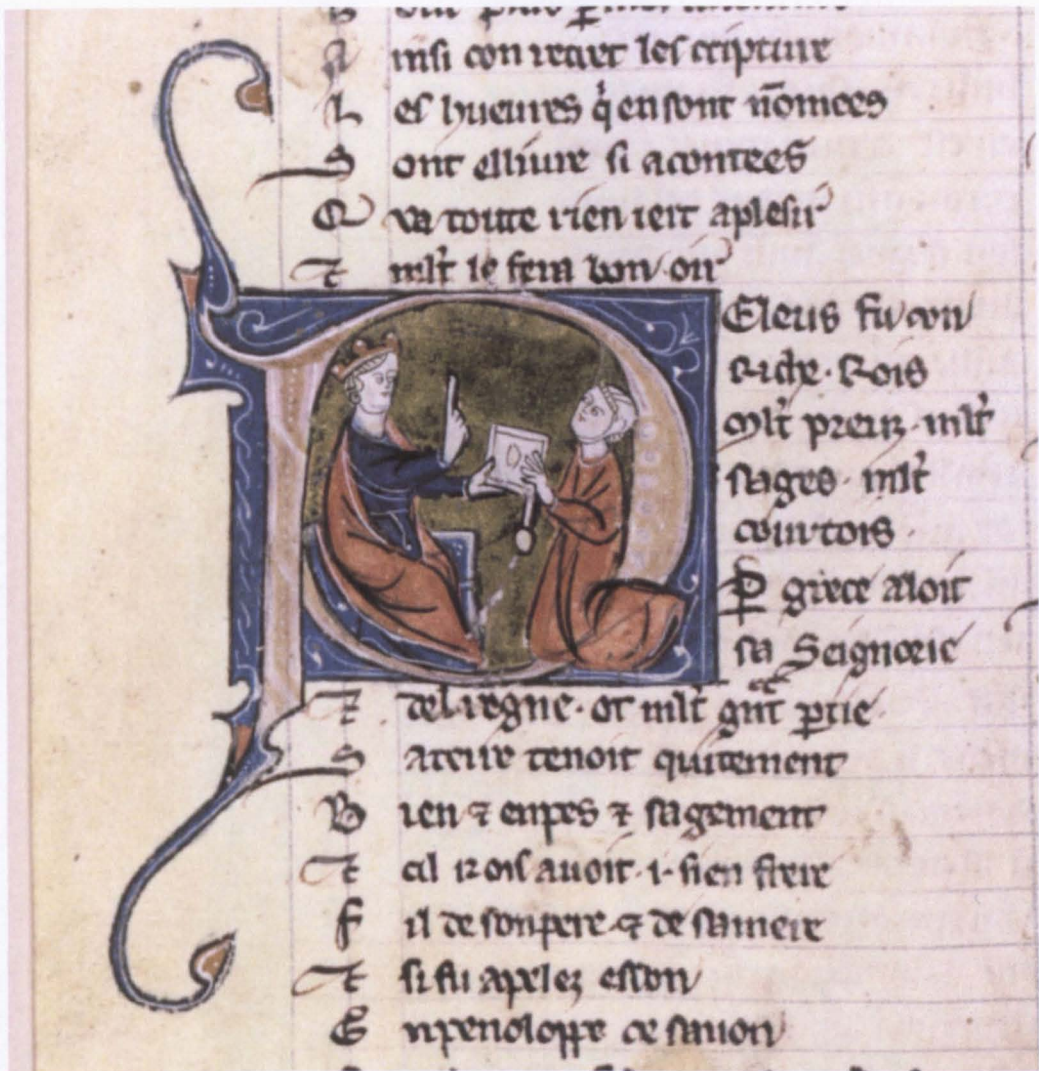 A insi con retret lescripture
L es hueures q̃ en sont nōmees
S ont el liure si acontees
Q va toute rien iert a plesir
⁊ mlt le fera bon oir
P Eleus fu con
riche · Rois
mlt preuz · mlt
sages · mlt
courtois
P̱ grece aloit
sa Seignorie
⁊ del regne · ot mlt gñt ptie
S a terre tenoit quitement
B ien ⁊ en pes ⁊ sagement
⁊ cil rois auoit · i · sien frere
F il de son pere ⁊ de sa meire
⁊ si fu apelez eson
E n penoloppe ce sauon